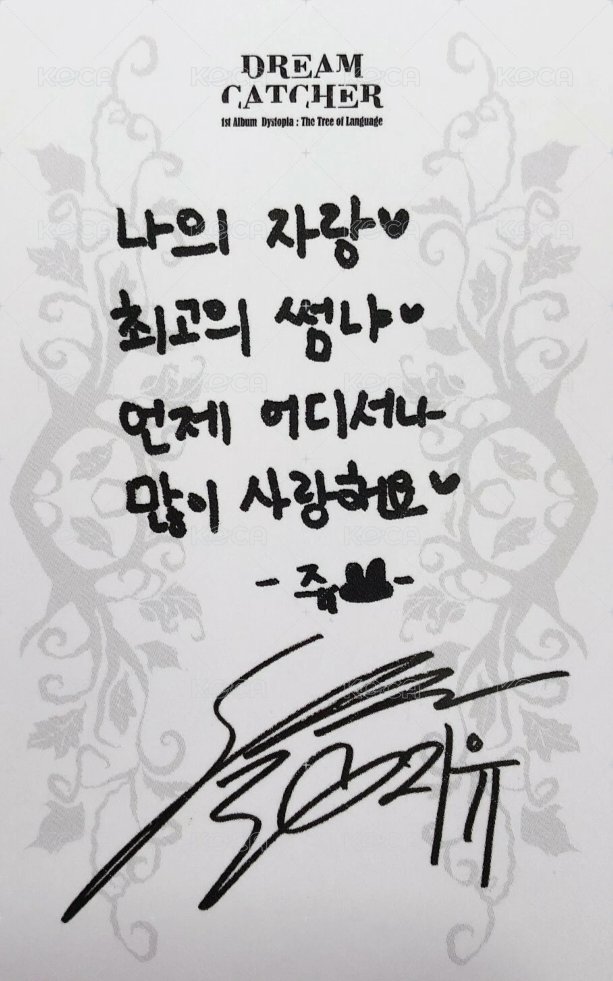 DREAM
CATCHER
1st Album Dystopia : The Tree of Language
나의 자랑♥
최고의 썸냐♥
언제 어디서나
많이 사랑해요♥
지유
KOCA